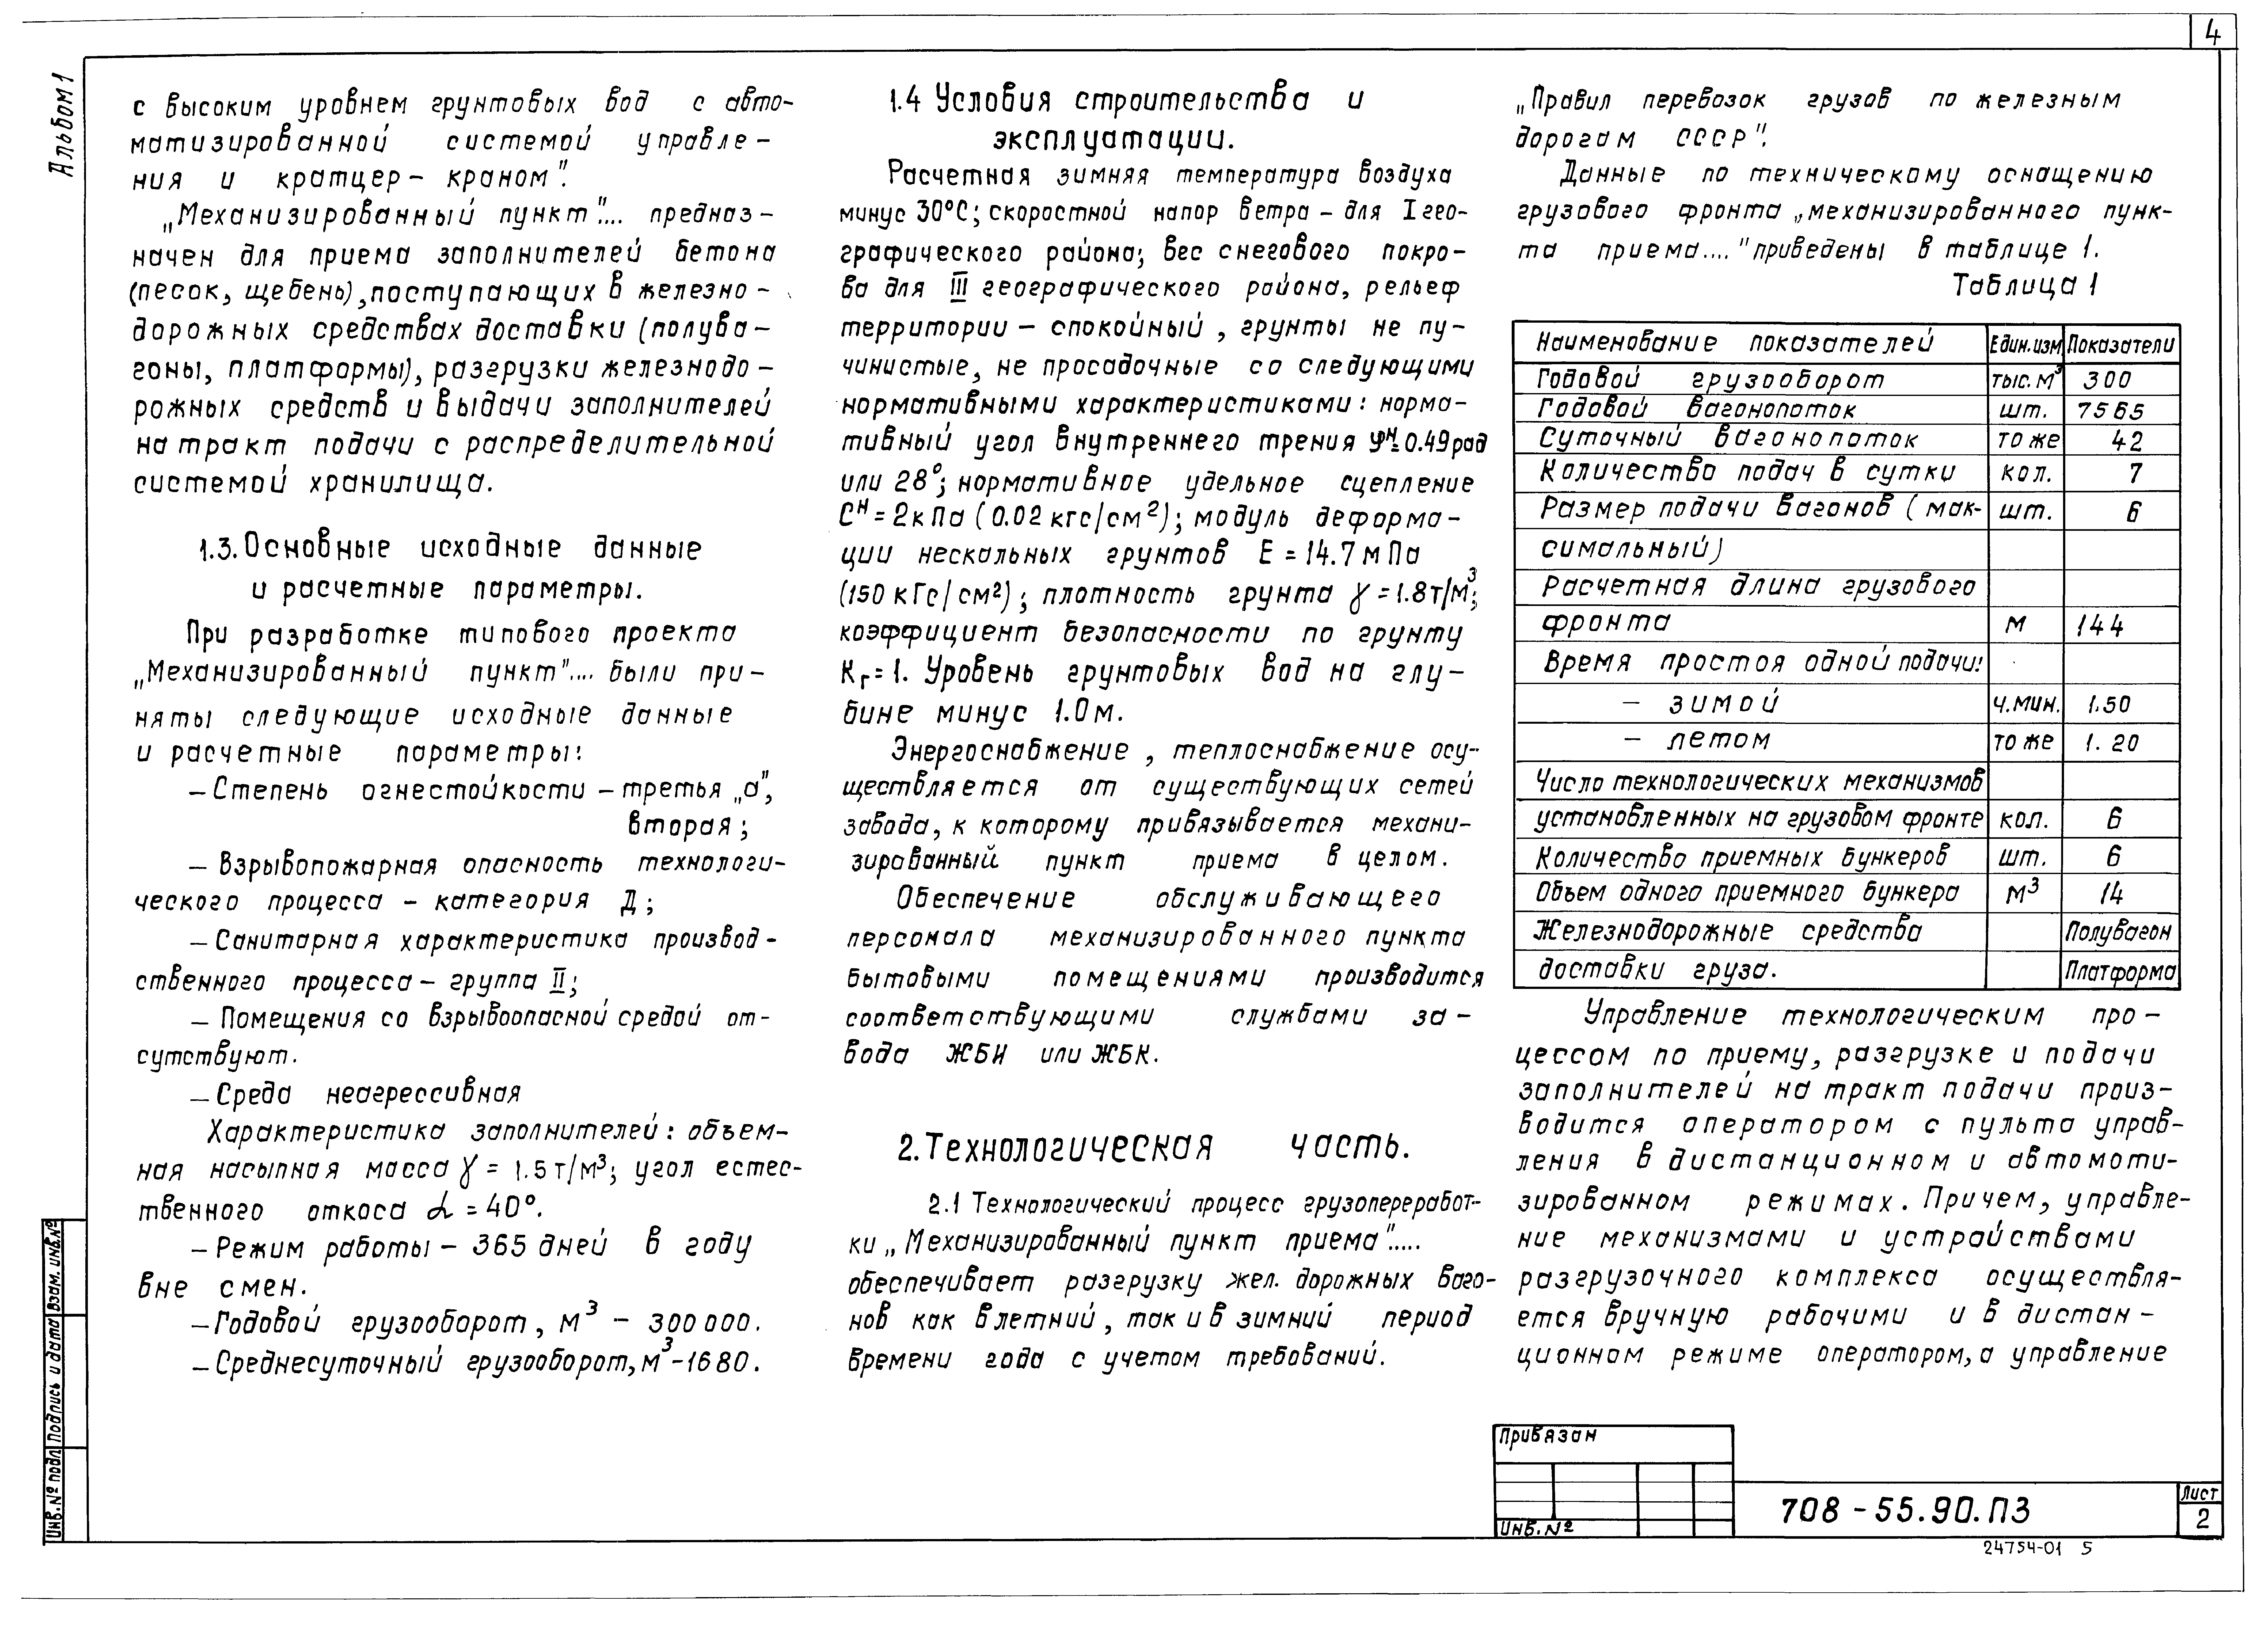 4
Альбом 1
с высоким уровнем грунтовых вод с авто-
матизированной системой управле-
ния и кратцер-краном".
„Механизированный пункт"... предназ-
начен для приема заполнителей бетона
(песок, щебень), поступающих в железно-
дорожных средствах доставки (полува-
гоны, платформы), разгрузки железнодо-
рожных средств и выдачи заполнителей
на тракт подачи с распределительной
системой хранилища.
1.3. Основные исходные данные
и расчетные параметры.
При разработке типового проекта
„Механизированный пункт".... были при-
няты следующие исходные данные
и расчетные параметры:
– Степень огнестойкости – третья „а",
вторая;
– Взрывопожарная опасность технологи-
ческого процесса – категория Д;
– Санитарная характеристика производ-
ственного процесса – группа II;
– Помещения со взрывоопасной средой от-
сутствуют.
– Среда неагрессивная
Характеристика заполнителей: объем-
ная насыпная масса γ = 1.5 т/м³; угол естес-
твенного откоса α = 40°.
– Режим работы – 365 дней в году
вне смен.
– Годовой грузооборот, м³ – 300 000.
– Среднесуточный грузооборот, м³ – 1680.
1.4 Условия строительства и
эксплуатации.
Расчетная зимняя температура воздуха
минус 30°С; скоростной напор ветра – для I гео-
графического района; вес снегового покро-
ва для III географического района, рельеф
территории – спокойный, грунты не пу-
чинистые, не просадочные со следующими
нормативными характеристиками: норма-
тивный угол внутреннего трения φᴴ= 0.49 рад
или 28°; нормативное удельное сцепление
Сᴴ = 2 кПа (0.02 кгс/см²); модуль деформа-
ции нескальных грунтов Е = 14.7 мПа
(150 кГс/см²); плотность грунта γ = 1.8 т/м³;
коэффициент безопасности по грунту
Кг = 1. Уровень грунтовых вод на глу-
бине минус 1.0 м.
Энергоснабжение, теплоснабжение осу-
ществляется от существующих сетей
завода, к которому привязывается механи-
зированный пункт приема в целом.
Обеспечение обслуживающего
персонала механизированного пункта
бытовыми помещениями производится
соответствующими службами за-
вода ЖБИ или ЖБК.
2. Технологическая часть.
2.1 Технологический процесс грузопереработ-
ки „Механизированный пункт приема".....
обеспечивает разгрузку жел. дорожных ваго-
нов как в летний, так и в зимний период
времени года с учетом требований.
„Правил перевозок грузов по железным
дорогам СССР".
Данные по техническому оснащению
грузового фронта „механизированного пунк-
та приема...." приведены в таблице 1.
Таблица 1
Наименование показателей Един. изм. Показатели
Годовой грузооборот тыс. м³ 300
Годовой вагонопоток шт. 7565
Суточный вагонопоток то же 42
Количество подач в сутки кол. 7
Размер подачи вагонов (мак- шт. 6
симальный)
Расчетная длина грузового
фронта м 144
Время простоя одной подачи:
– зимой ч.мин. 1.50
– летом то же 1.20
Число технологических механизмов
установленных на грузовом фронте кол. 6
Количество приемных бункеров шт. 6
Объем одного приемного бункера м³ 14
Железнодорожные средства Полувагон
доставки груза. Платформа
Управление технологическим про-
цессом по приему, разгрузке и подачи
заполнителей на тракт подачи произ-
водится оператором с пульта управ-
ления в дистанционном и автомоти-
зированном режимах. Причем, управле-
ние механизмами и устройствами
разгрузочного комплекса осуществля-
ется вручную рабочими и в дистан-
ционном режиме оператором, а управление
Взам. инв. №
Подпись и дата
Инв. № подл.
Привязан
Инв. №
708-55.90.ПЗ
Лист
2
24754-01 5